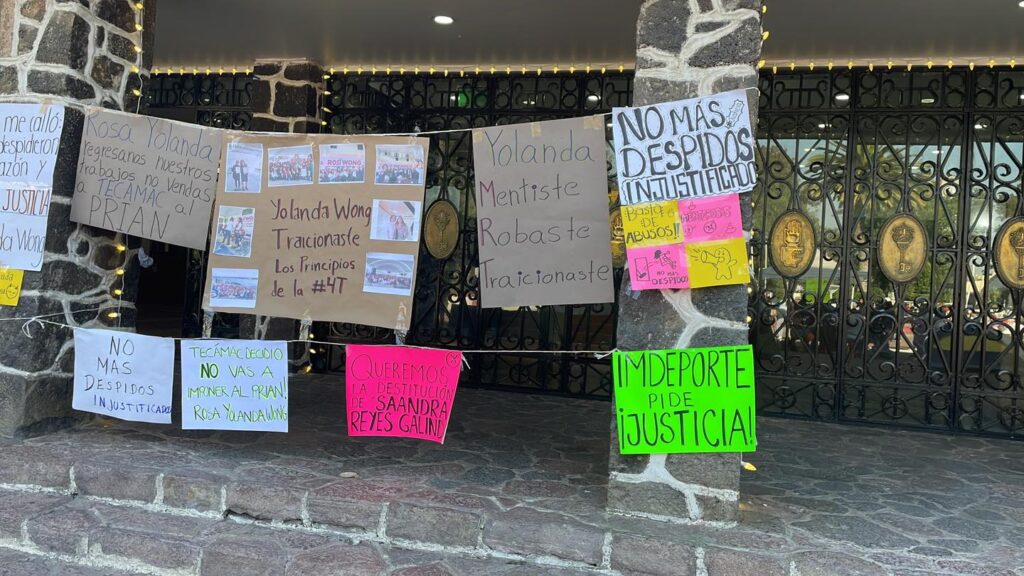 me calló
despidieron
razón y
JUSTICIA
Wong
Rosa Yolanda
regresanos nuestros
trabajos no vendas
a TECAMAC al
PRIAN
Yolanda Wong
Traicionaste
Los Principios
de la #4T
Yolanda
Mentiste
Robaste
Traicionaste
NO MÁS
DESPIDOS
INJUSTIFICADO
BASTA DE
ABUSOS!!
NO MAS
DESPIDOS
NO
MAS
DESPIDOS
INJUSTIFICADOS
TECÁMAC DECIDIO
NO VAS A
IMPONER AL PRIAN!
ROSA YOLANDA WONG
QUEREMOS
LA DESTITUCIÓN
DE SAANDRA
REYES GALIND
IMDEPORTE
PIDE
¡JUSTICIA!